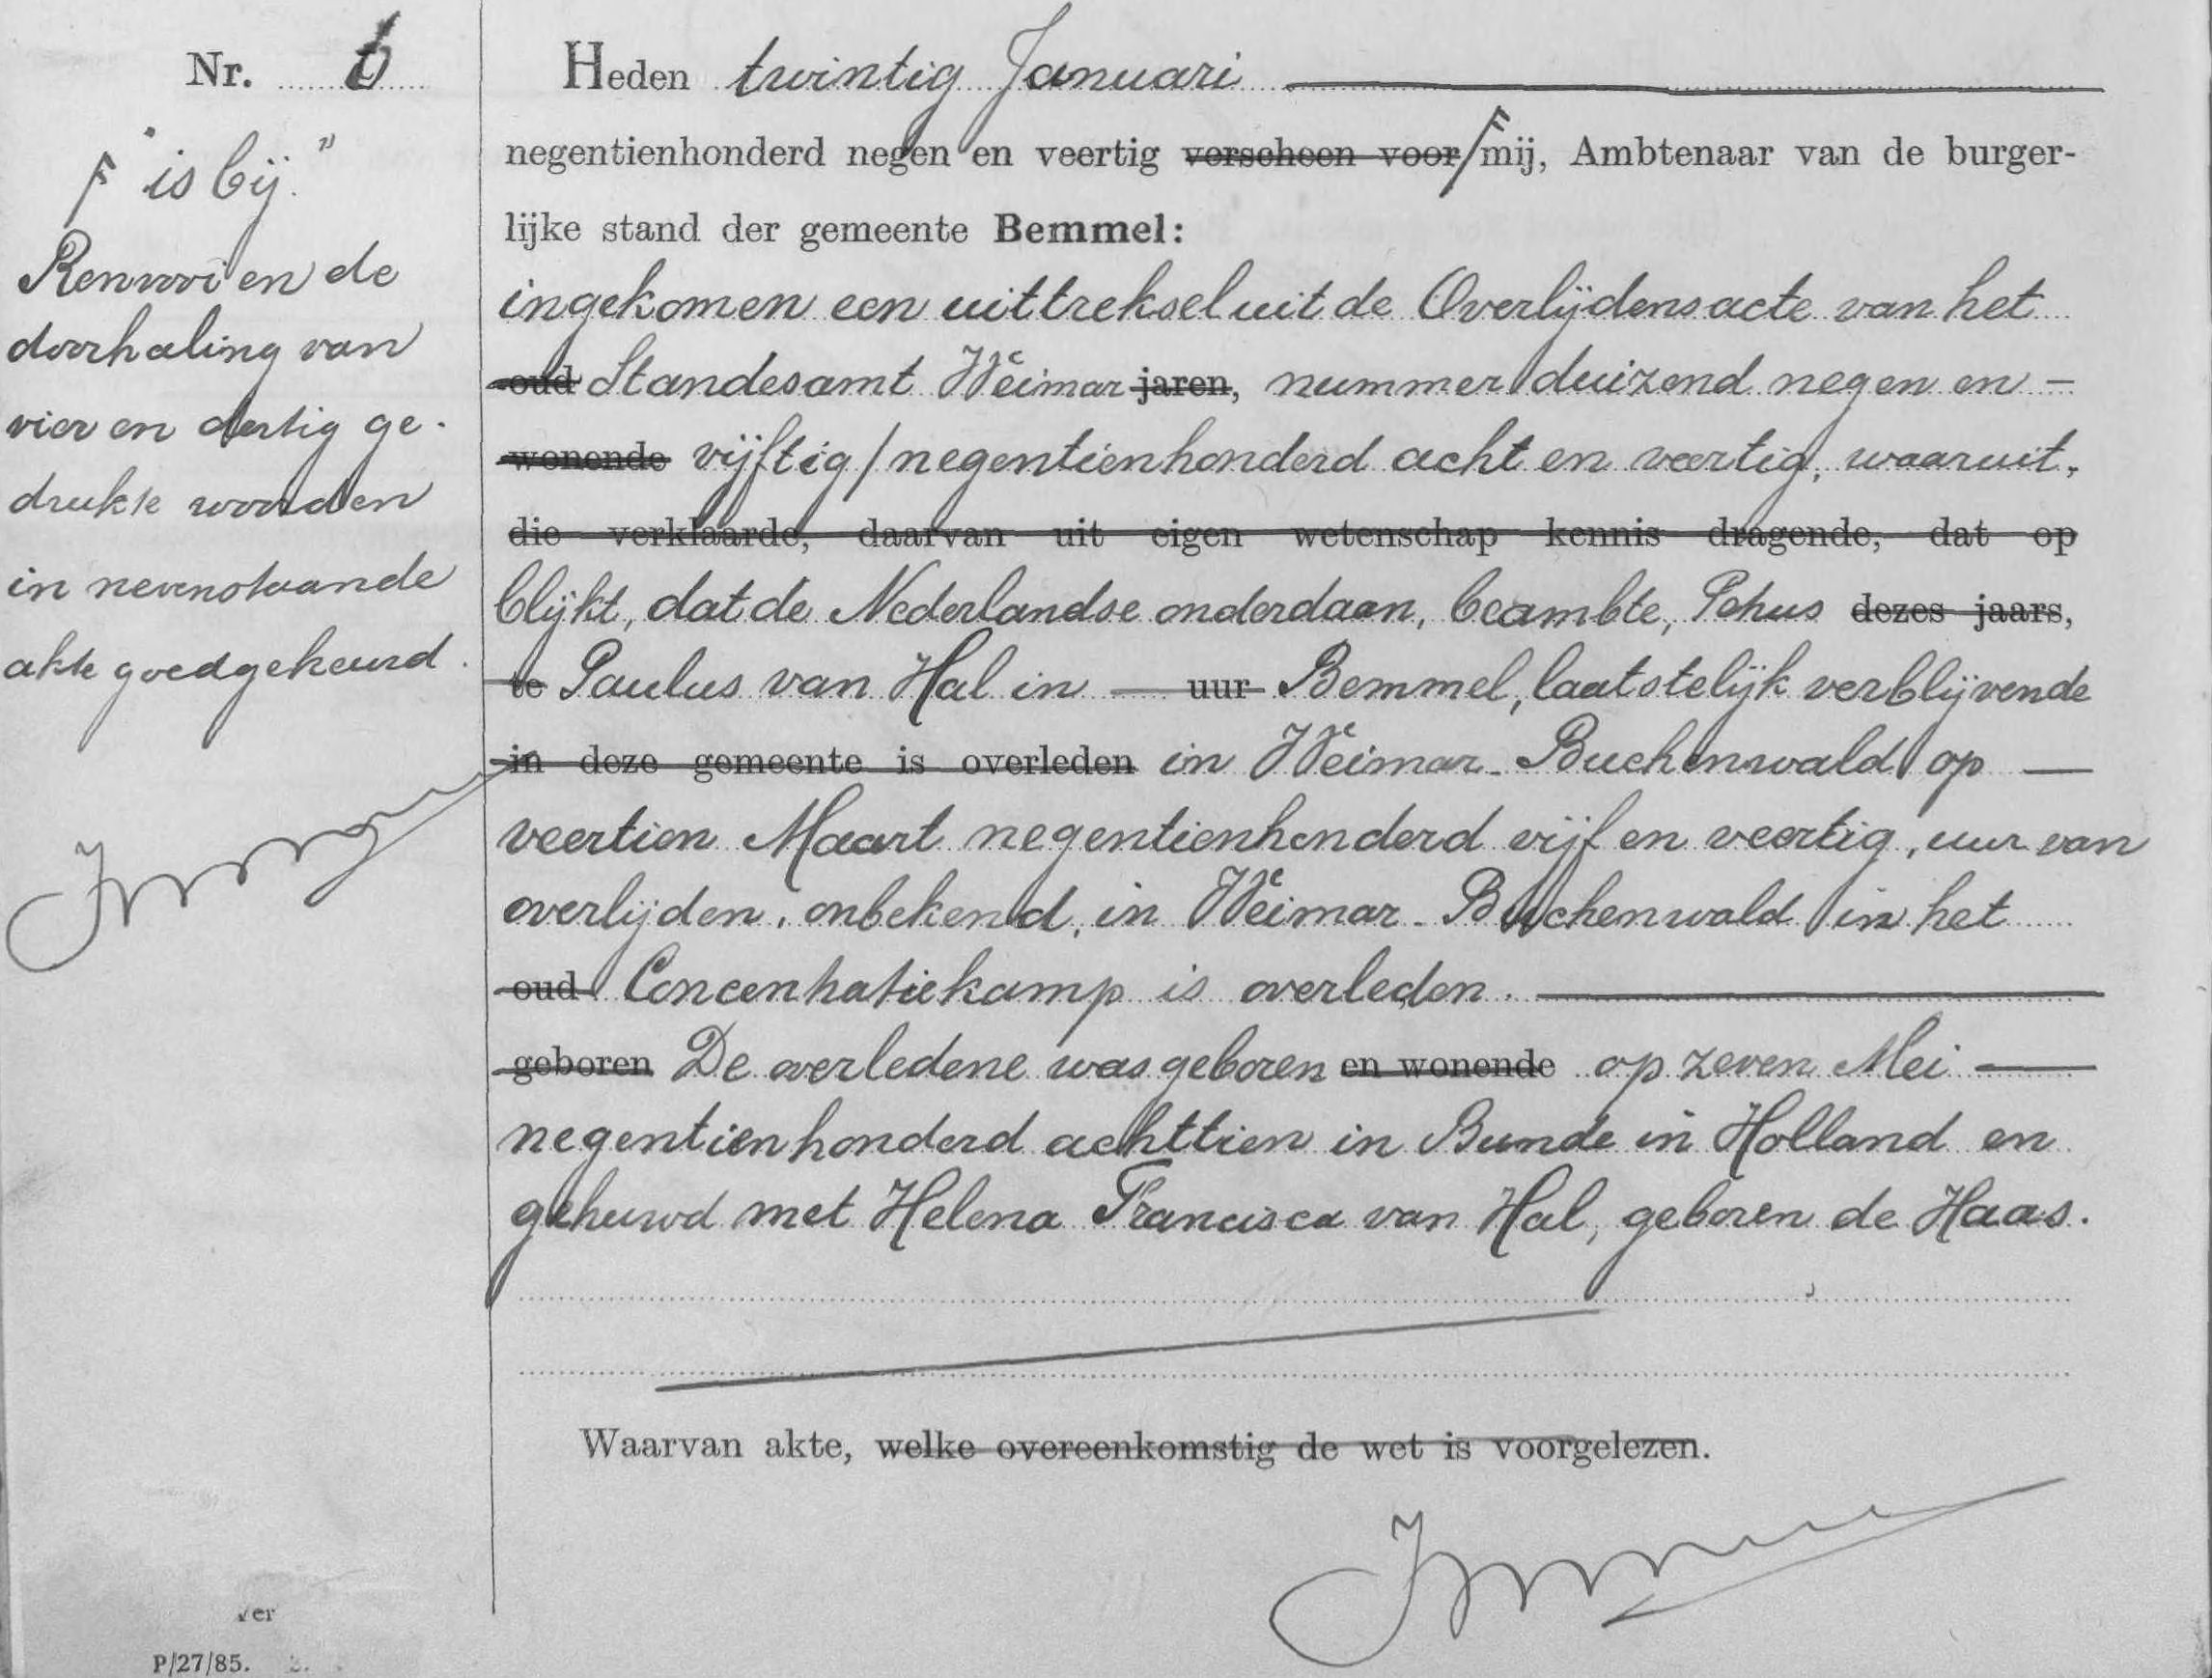 Nr. 6
"is bij."
Renvooi en de
doorhaling van
vier en dertig ge-
drukte woorden
in nevenstaande
akte goedgekeurd.
Heden twintig Januari
negentienhonderd negen en veertig verscheen voor mij, Ambtenaar van de burger-
lijke stand der gemeente Bemmel:
ingekomen een uittreksel uit de Overlijdensacte van het
oud Standesamt Weimar jaren, nummer duizend negen en -
wonende vijftig / negentienhonderd acht en veertig, waaruit,
die verklaarde, daarvan uit eigen wetenschap kennis dragende, dat op
blijkt, dat de Nederlandse onderdaan, beambte, Petrus dezes jaars,
te Paulus van Hal in — uur Bemmel, laatstelijk verblijvende
in deze gemeente is overleden in Weimar-Buchenwald op —
veertien Maart negentienhonderd vijf en veertig, uur van
overlijden, onbekend, in Weimar-Buchenwald in het
oud Concentratiekamp is overleden.
geboren De overledene was geboren en wonende op zeven Mei —
negentienhonderd achttien in Bunde in Holland en
gehuwd met Helena Francisca van Hal, geboren de Haas.
Waarvan akte, welke overeenkomstig de wet is voorgelezen.
P/27/85.